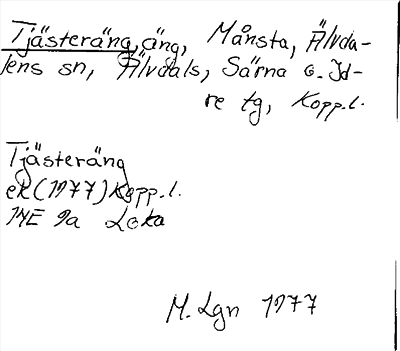 Tjästeräng, äng, Månsta, Älvda-
lens sn, Älvdals, Särna o. Id-
re tg, Kopp.l.
Tjästeräng
ek (1977) Kopp.l.
14E 9a Loka
M. Lgn 1977